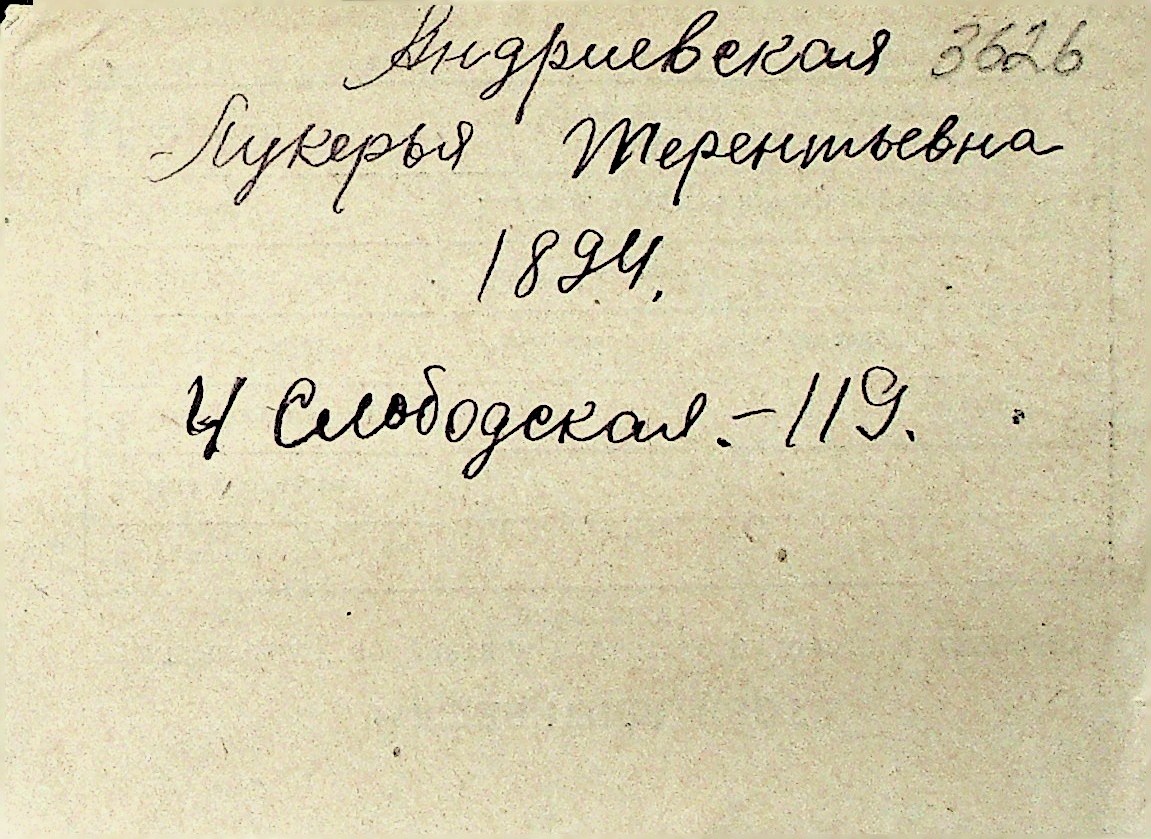 Андриевская 3626
Лукерья Терентьевна
1894.
4 Слободская.-119.